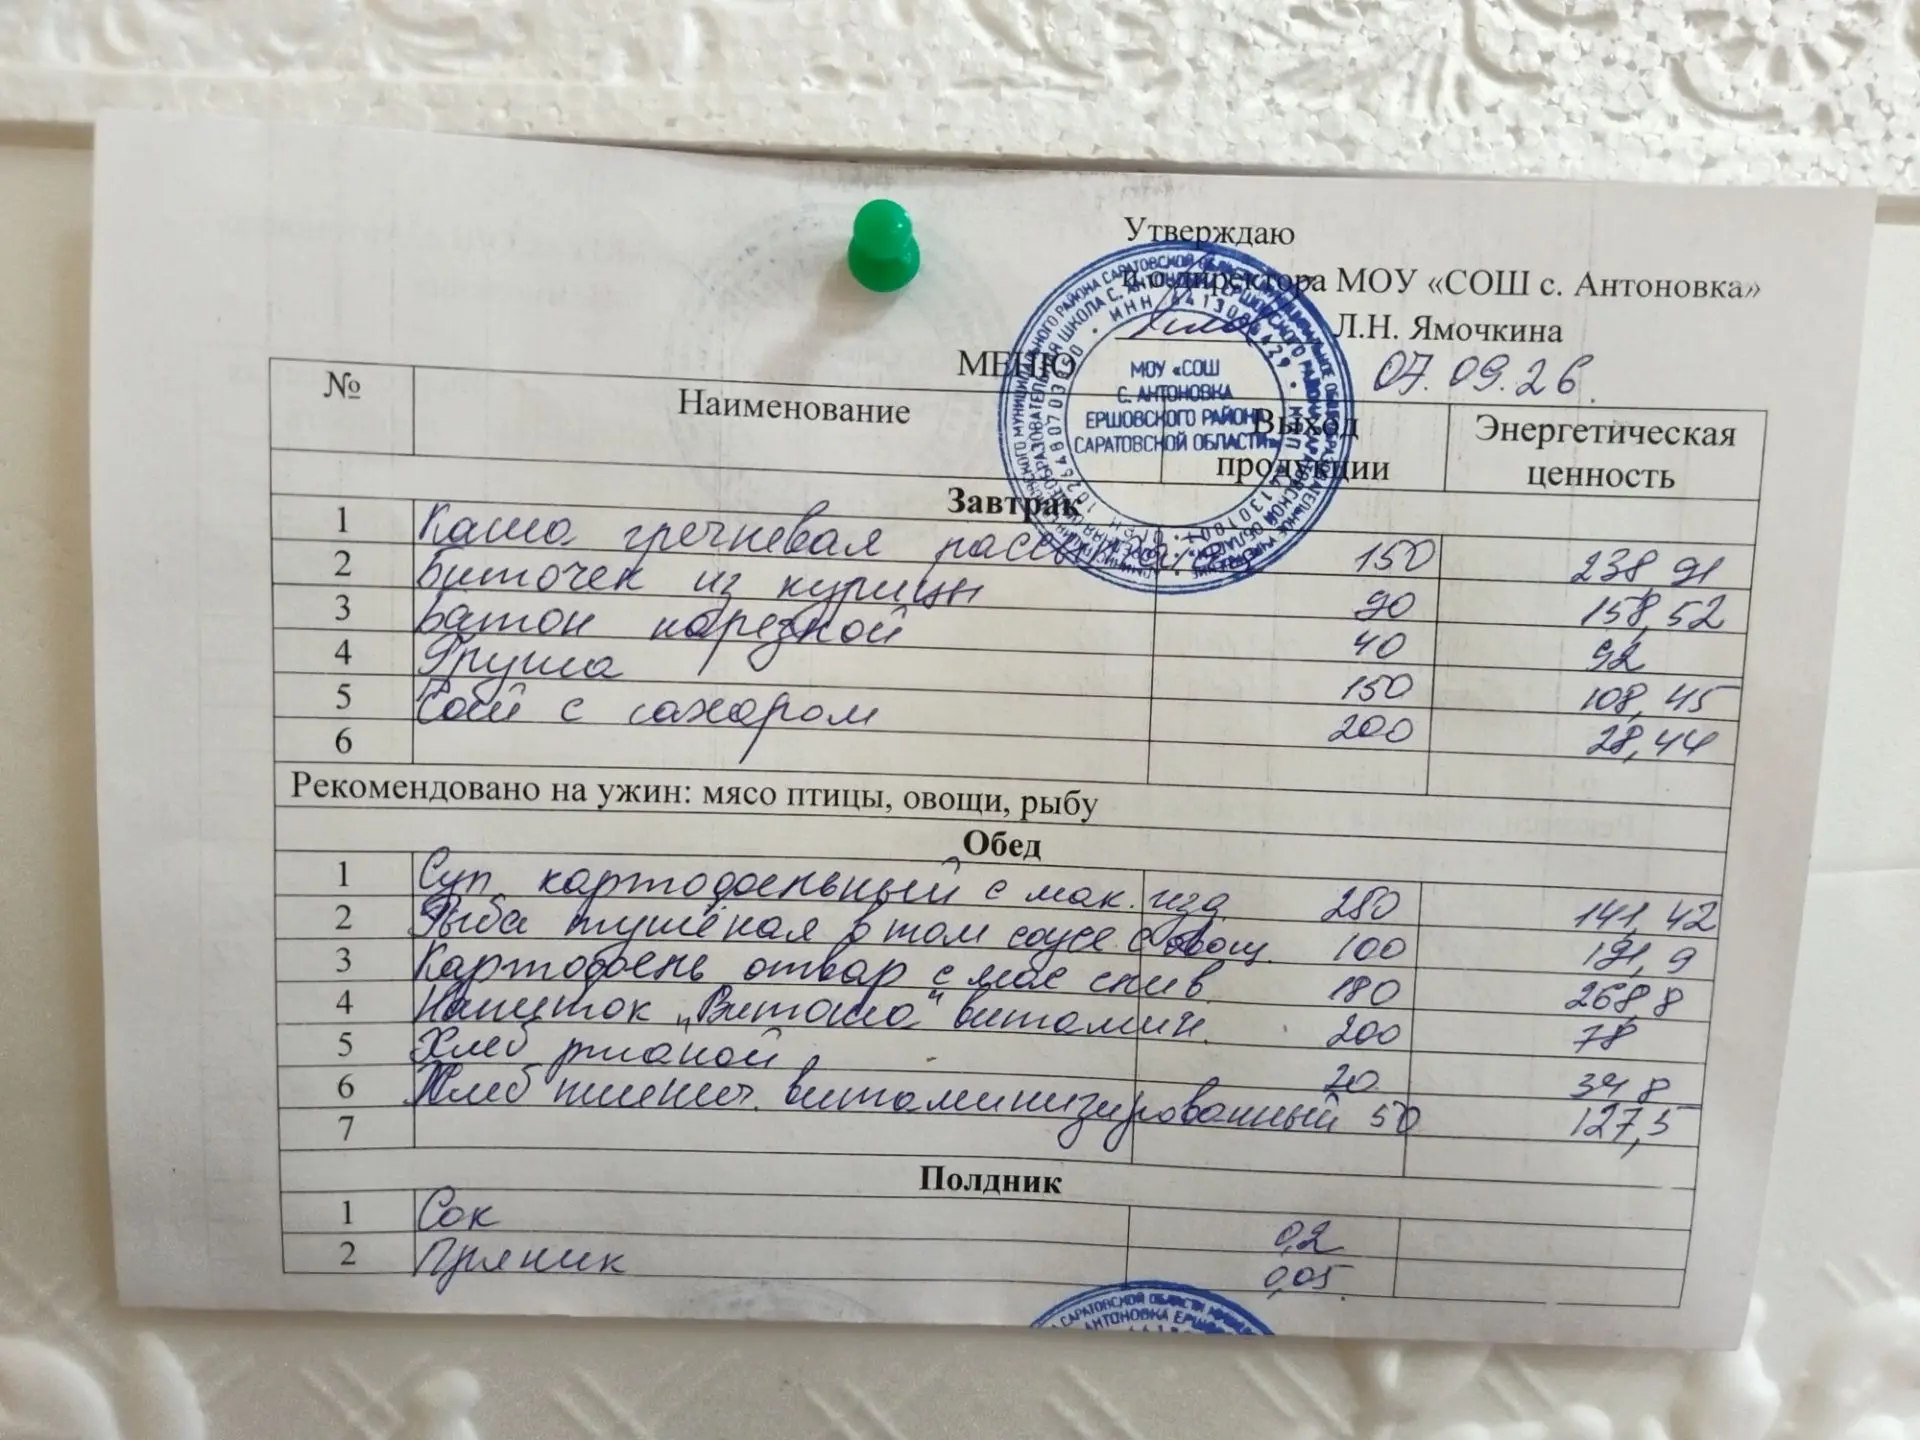 Утверждаю
и.о.директора МОУ «СОШ с. Антоновка»
Л.Н. Ямочкина
МЕНЮ
07.09.26.
МОУ «СОШ
С. АНТОНОВКА
ЕРШОВСКОГО РАЙОНА
САРАТОВСКОЙ ОБЛАСТИ»
№ Наименование Выход продукции Энергетическая ценность
Завтрак
1 Каша гречневая рассыпчатая 150 238,91
2 Биточек из курицы 90 158,52
3 Батон нарезной 40 92
4 Груша 150 108,45
5 с сахаром 200 28,44
6
Рекомендовано на ужин: мясо птицы, овощи, рыбу
Обед
1 Суп картофельный с мак. изд. 280 141,42
2 Рыба тушёная в том соусе с овощ. 100 191,9
3 Картофель отвар с мас слив. 180 268,8
4 Напиток „Витоша" витамин. 200 78
5 Хлеб ржаной 20 34 8
6 Хлеб пшенич. витаминизированный 50 127,5
7
Полдник
1 Сок 0,2
2 Пряник 0,05.